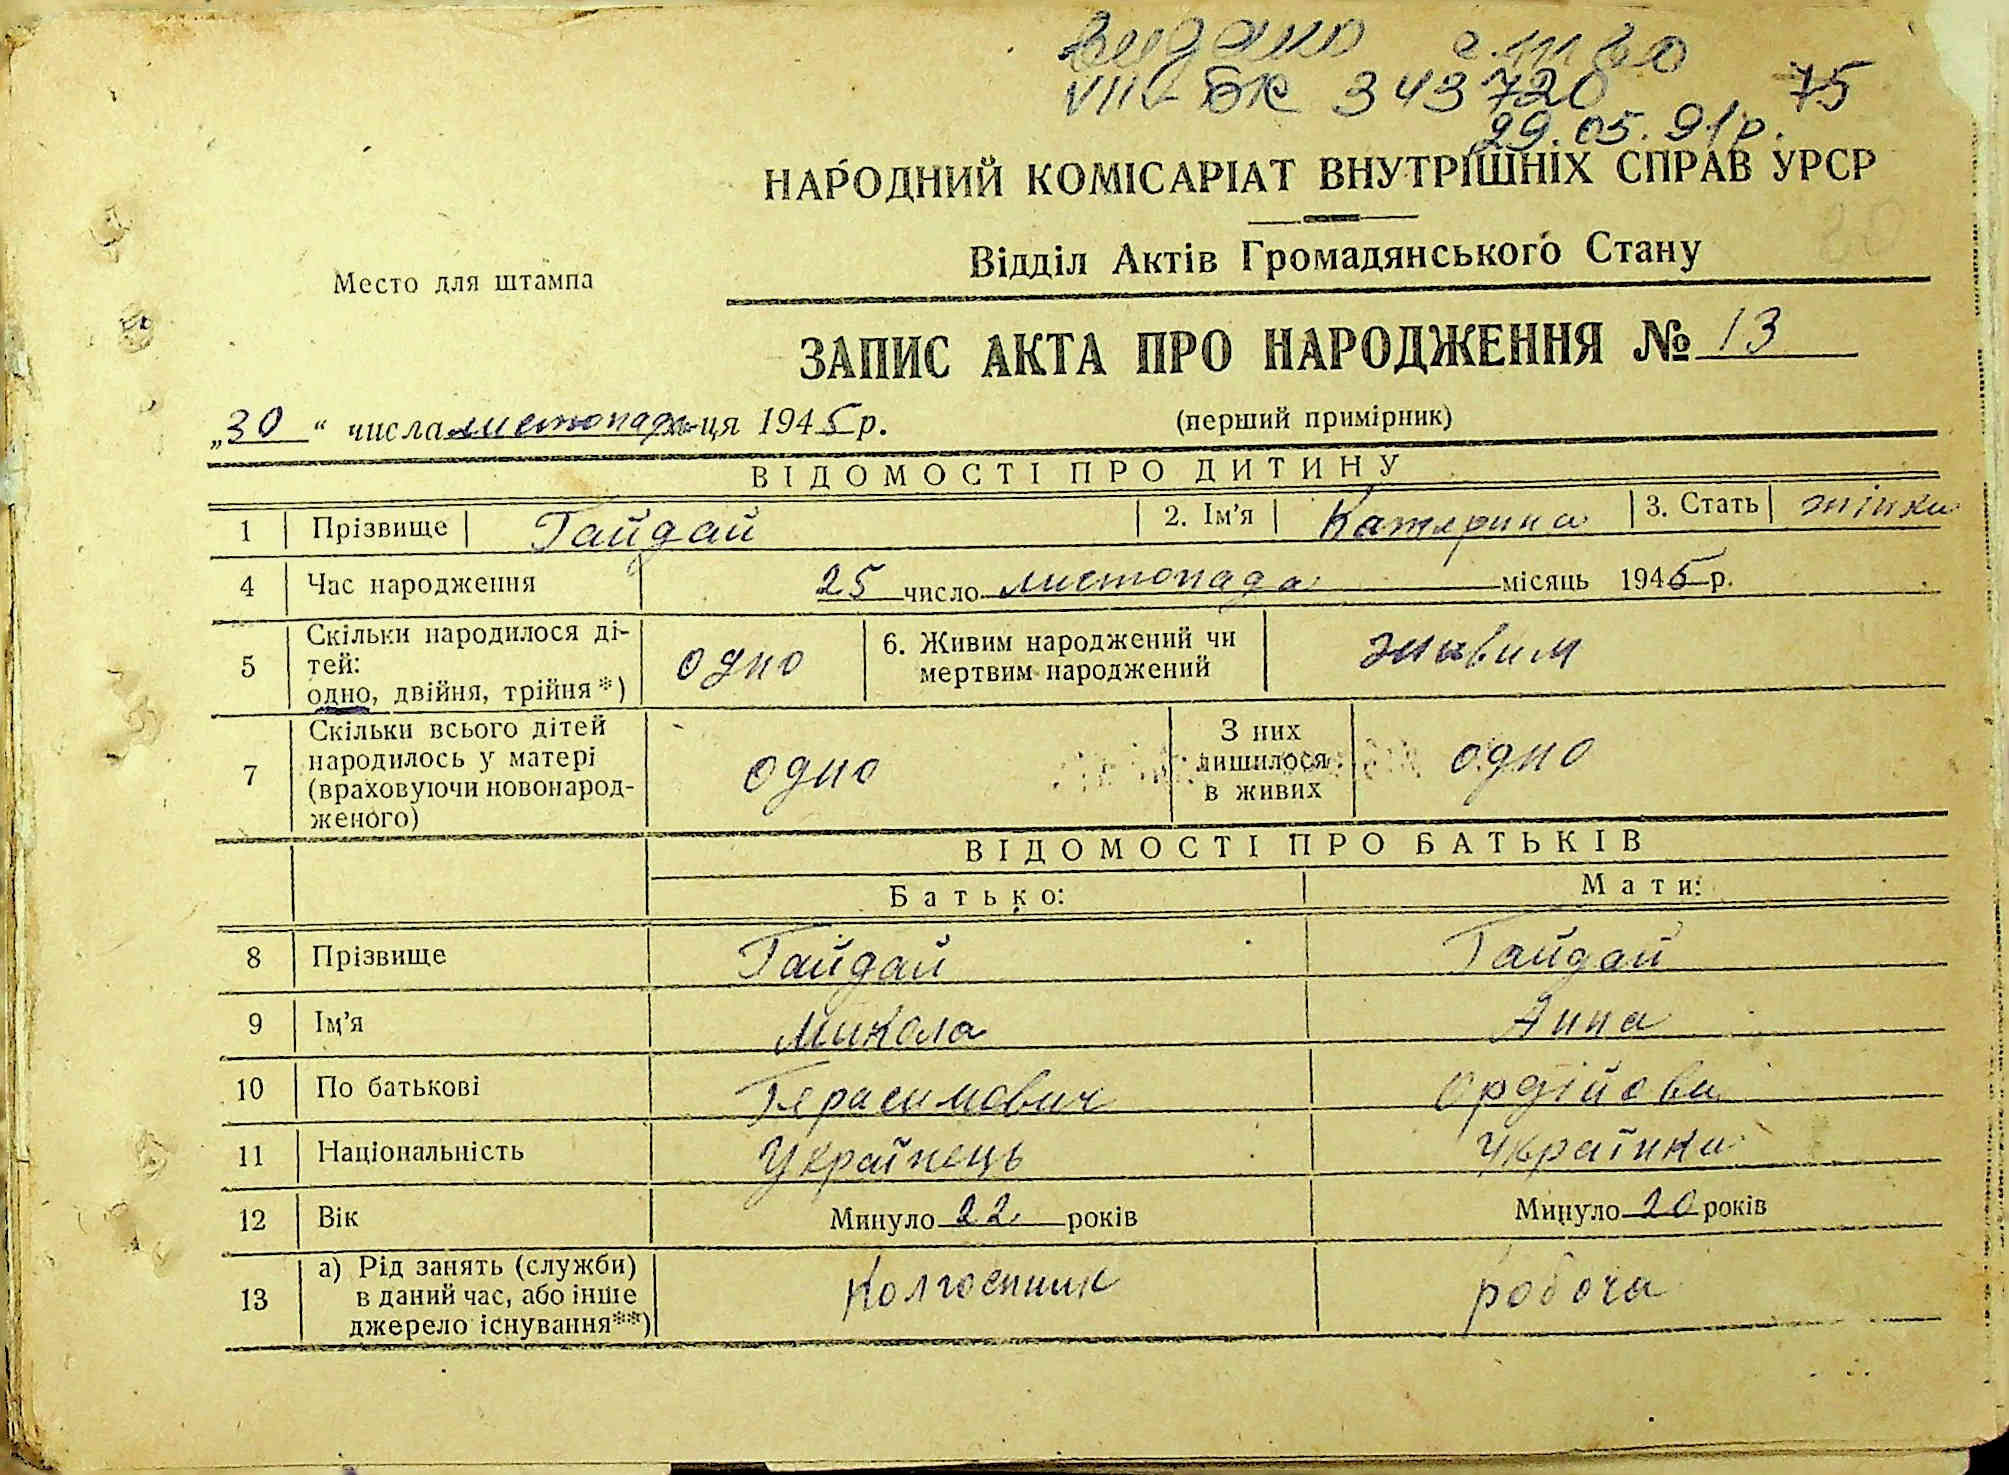 Видано
VII-БК 343720 75
29.05.91р.
НАРОДНИЙ КОМІСАРІАТ ВНУТРІШНІХ СПРАВ УРСР
Відділ Актів Громадянського Стану
Место для штампа
ЗАПИС АКТА ПРО НАРОДЖЕННЯ № 13
„30“ числа листопада м-ця 1945 р.
(перший примірник)
ВІДОМОСТІ ПРО ДИТИНУ
1 Прізвище Гайдай 2. Ім'я Катерина 3. Стать жінки
4 Час народження 25 число листопада місяць 1945 р.
5 Скільки народилося ді-
тей:
одно, двійня, трійня*) одно 6. Живим народжений чи
мертвим народжений живим
7 Скільки всього дітей
народилось у матері
(враховуючи новонарод-
женого) одно З них
лишилося
в живих одно
ВІДОМОСТІ ПРО БАТЬКІВ
Батько: Мати:
8 Прізвище Гайдай Гайдай
9 Ім'я Микола Анна
10 По батькові Герасимович
11 Національність Українець Українка
12 Вік Минуло 22 років Минуло 20 років
13 а) Рід занять (служби)
в даний час, або інше
джерело існування**) Колгоспник робоча